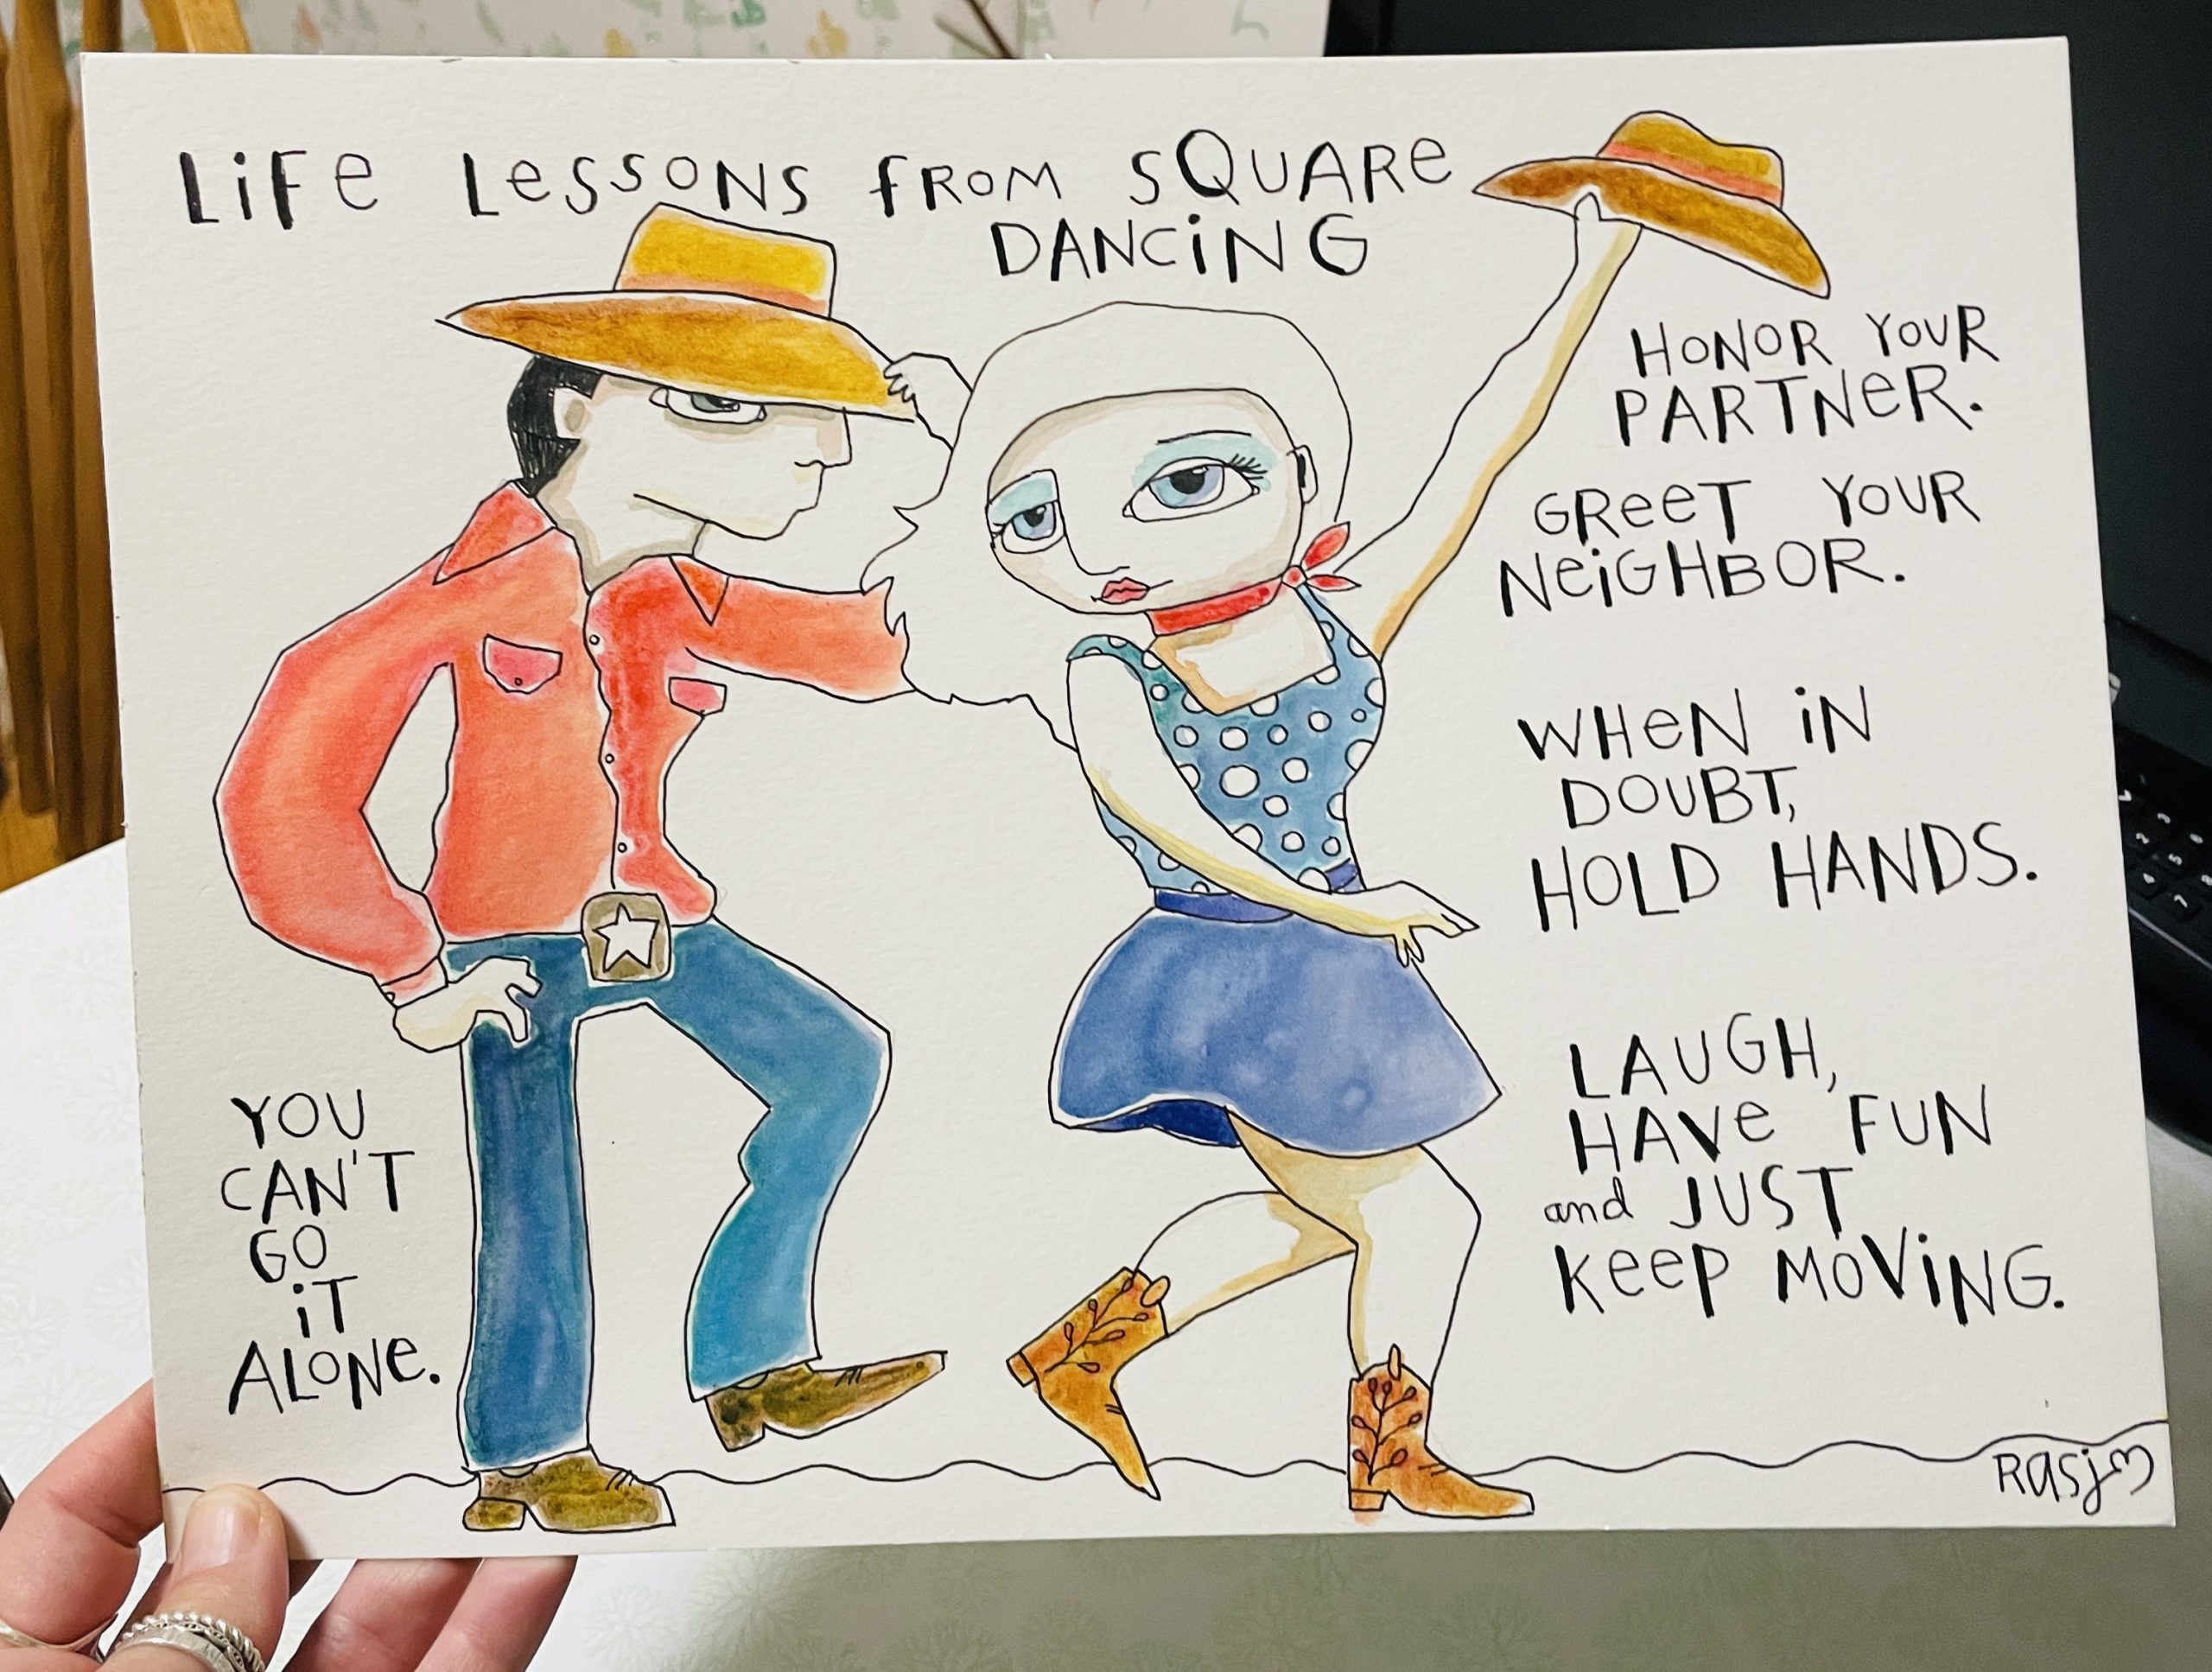 LiFe LessONS fROM SQUARe
DANCiNG
HONOR YOUR
PARTNeR.
GReeT YOUR
NeiGHBOR.
WHeN iN
DOUBT,
HOLD HANDS.
LAUGH,
HAVe FUN
and JUST
Keep MOViNG.
YOU
CAN'T
GO
iT
ALONe.
Rasj